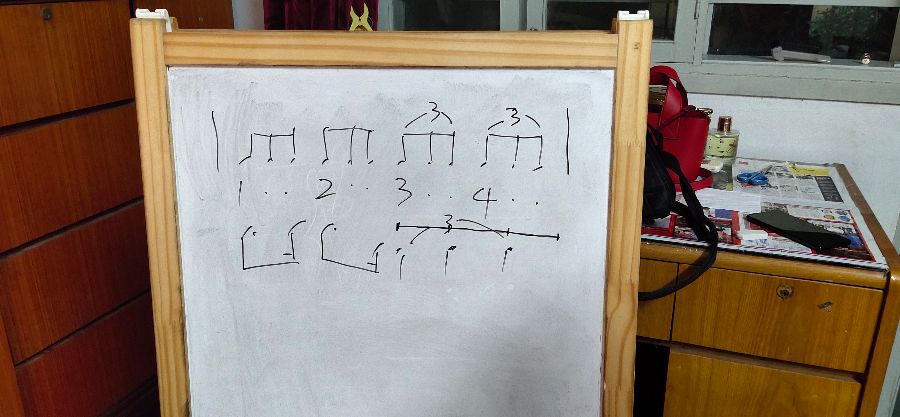 3 3
1 . . 2 . . 3 . . 4 . .
3